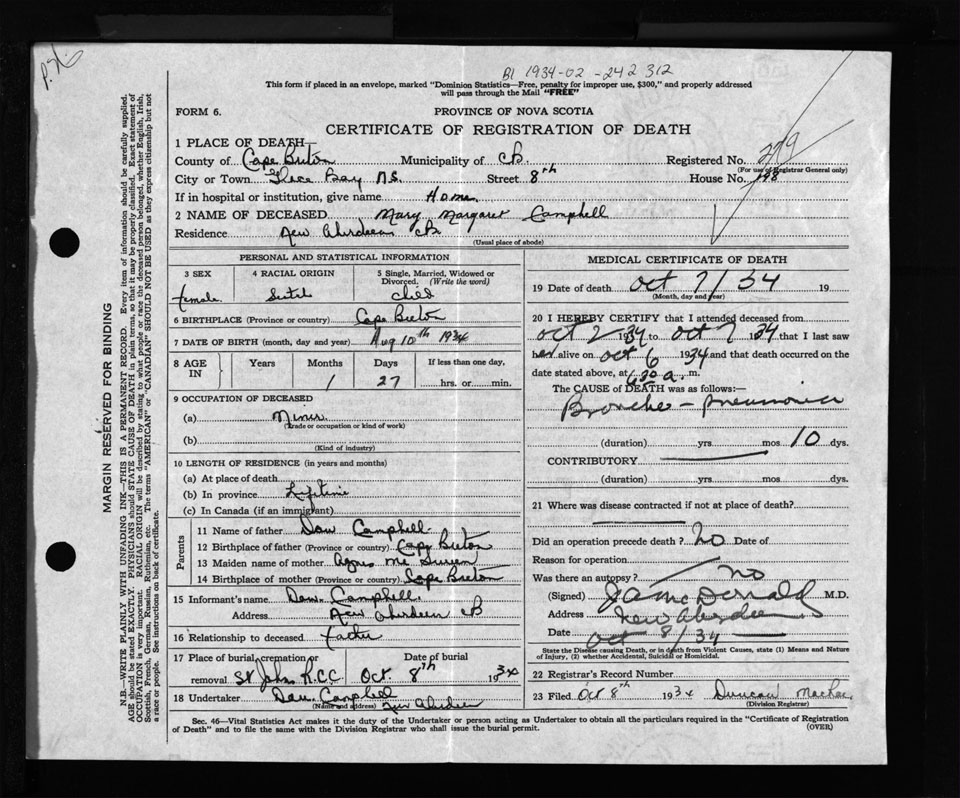 P.N.
B1 1934-02-242 312
This form if placed in an envelope, marked "Dominion Statistics—Free, penalty for improper use, $300," and properly addressed
will pass through the Mail "FREE"
FORM 6.
PROVINCE OF NOVA SCOTIA
CERTIFICATE OF REGISTRATION OF DEATH
1 PLACE OF DEATH—
County of Cape Breton Municipality of CB. Registered No. 279
(For use of Registrar General only)
City or Town Glace Bay N.S. Street 8th House No. 188
If in hospital or institution, give name Home
2 NAME OF DECEASED Mary Margaret Campbell
Residence New Aberdeen CB
(Usual place of abode)
PERSONAL AND STATISTICAL INFORMATION
3 SEX 4 RACIAL ORIGIN 5 Single, Married, Widowed or Divorced. (Write the word)
female Scotch child
6 BIRTHPLACE (Province or country) Cape Breton
7 DATE OF BIRTH (month, day and year) Aug 10th 1934
8 AGE IN Years Months Days If less than one day,
1 27 hrs. or min.
9 OCCUPATION OF DECEASED
(a) Miner
(Trade or occupation or kind of work)
(b)
(Kind of industry)
10 LENGTH OF RESIDENCE (in years and months)
(a) At place of death
(b) In province Lifetime
(c) In Canada (if an immigrant)
Parents
11 Name of father Dan Campbell
12 Birthplace of father (Province or country) Cape Breton
13 Maiden name of mother Agnes Mc
14 Birthplace of mother (Province or country) Cape Breton
15 Informant's name Dan. Campbell
Address New Aberdeen CB
16 Relationship to deceased father
17 Place of burial, cremation or removal Date of burial
St Johns R.C.C. Oct. 8th 1934
18 Undertaker Dan Campbell
(Name and address) New Aberdeen
MEDICAL CERTIFICATE OF DEATH
19 Date of death Oct 7/34 19
(Month, day and year)
20 I HEREBY CERTIFY that I attended deceased from
Oct 2 1934 to Oct 7 1934 that I last saw
her alive on Oct 6 1934 and that death occurred on the
date stated above, at 6.30 a. m.
The CAUSE of DEATH was as follows:—
Broncho-pneumonia
(duration) yrs. mos. 10 dys.
CONTRIBUTORY
(duration) yrs. mos. dys.
21 Where was disease contracted if not at place of death?
Did an operation precede death? No Date of
Reason for operation
Was there an autopsy? no
(Signed) J A McDonald M.D.
Address New Aberdeen
Date Oct 8/34
State the Disease causing Death, or in death from Violent Causes, state (1) Means and Nature
of Injury, (2) whether Accidental, Suicidal or Homicidal.
22 Registrar's Record Number
23 Filed Oct 8th 1934 Duncan
(Division Registrar)
Sec. 46—Vital Statistics Act makes it the duty of the Undertaker or person acting as Undertaker to obtain all the particulars required in the "Certificate of Registration
of Death" and to file the same with the Division Registrar who shall issue the burial permit. (OVER)
MARGIN RESERVED FOR BINDING
N.B.—WRITE PLAINLY WITH UNFADING INK—THIS IS A PERMANENT RECORD. Every item of information should be carefully supplied.
AGE should be stated EXACTLY. PHYSICIANS should STATE CAUSE OF DEATH in plain terms, so that it may be properly classified. Exact statement of
OCCUPATION is very important. RACIAL ORIGIN will be described by stating to what people or race the deceased person belonged, whether English, Irish,
Scottish, French, German, Russian, Ruthenian, etc. The terms "AMERICAN" or "CANADIAN" SHOULD NOT BE USED as they express citizenship but not
a race or people. See instructions on back of certificate.